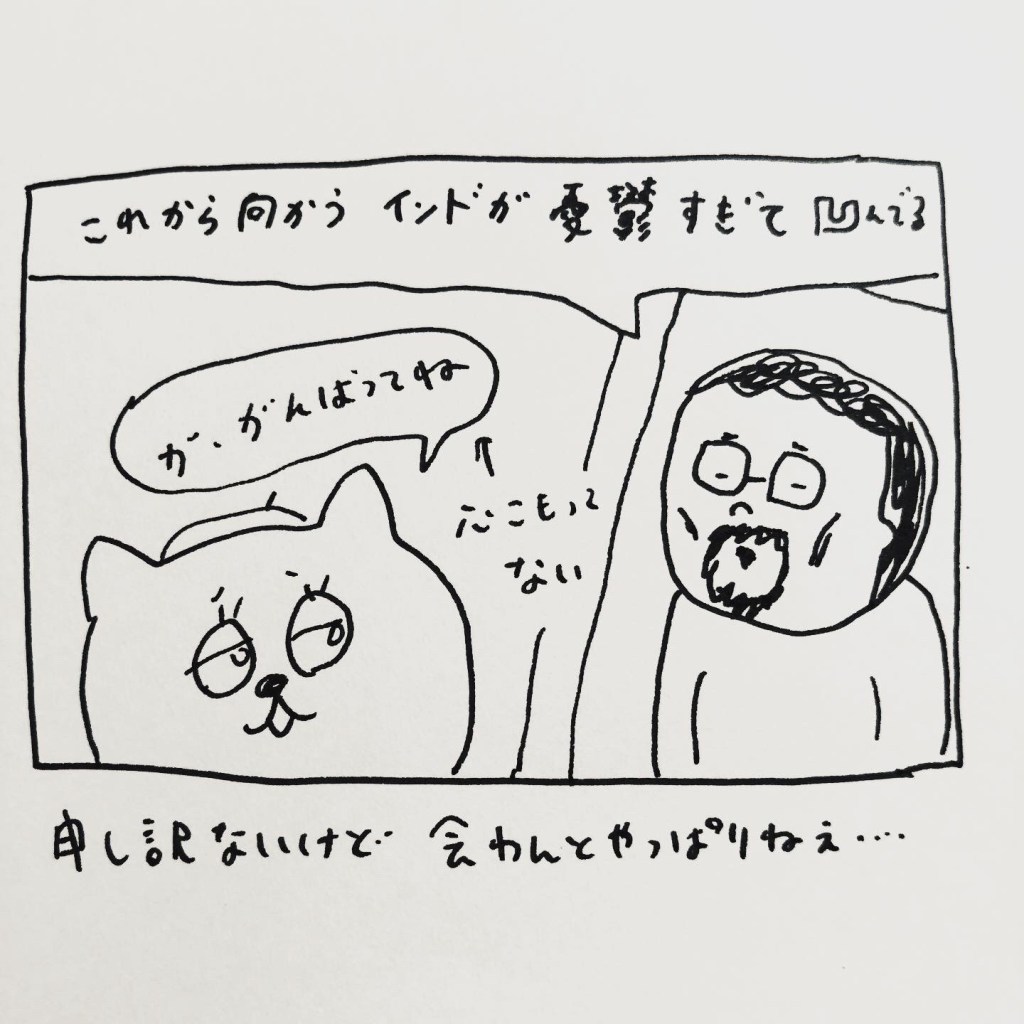 これから向かう インドが 憂鬱すぎて 凹んでる
が、がんばってね
↑
心こもって
ない
申し訳ないけど 会わんとやっぱりねぇ....